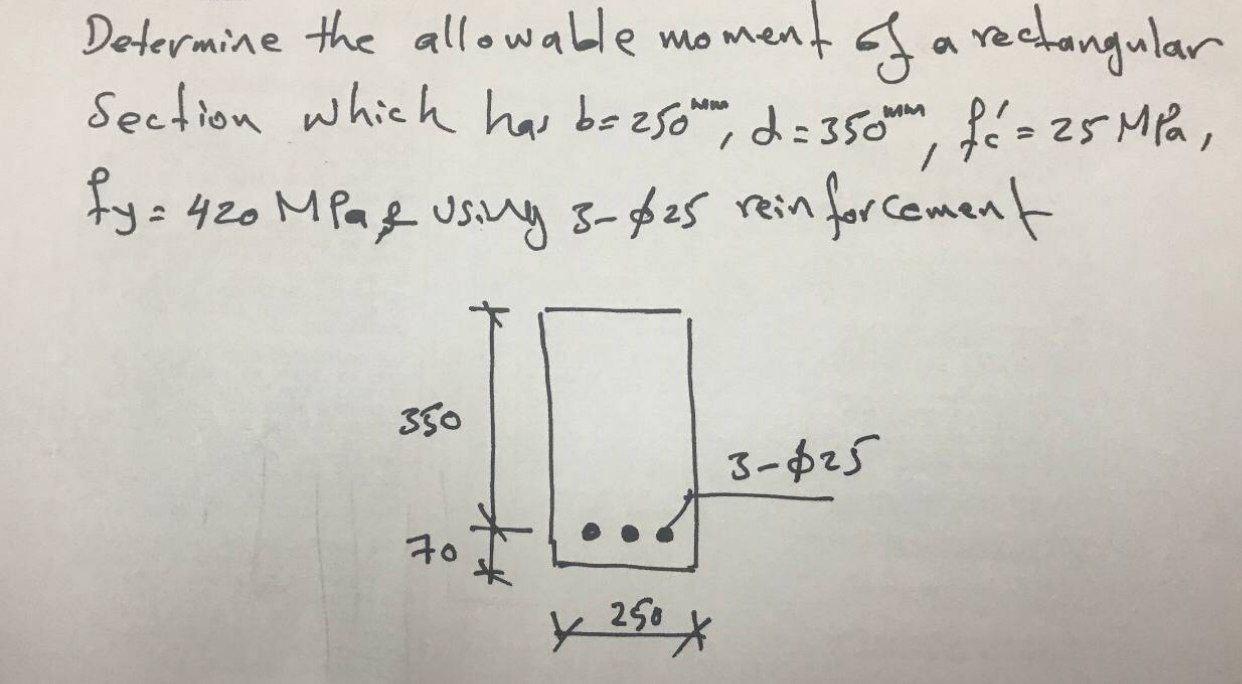 Determine the allowable moment of a rectangular
Section which has b=250mm, d=350mm, fc'=25 MPa,
fy=420 MPa & using 3-ϕ25 reinforcement
350
3-ϕ25
70
250